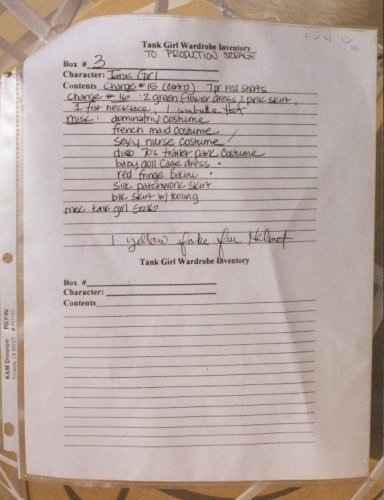 Tank Girl Wardrobe Inventory
TO PRODUCTION STORAGE
Box # 3
Character: Tank Girl
Contents change #15 (cont'd) 7pr red shorts
change # 16 : 2 green flower dress, 1 pink skirt,
1 fist necklace, 1
misc: dominatrix costume
french maid costume
sexy nurse costume
disco 70's trailer park costume
baby doll cage dress
red fringe bikini
silk patchwork skirt
blk skirt w/ tooling
misc. tank girl
1 yellow fake fur
Tank Girl Wardrobe Inventory
Box #
Character:
Contents
K&M Division
POLY-VU
Torrance, CA 90503